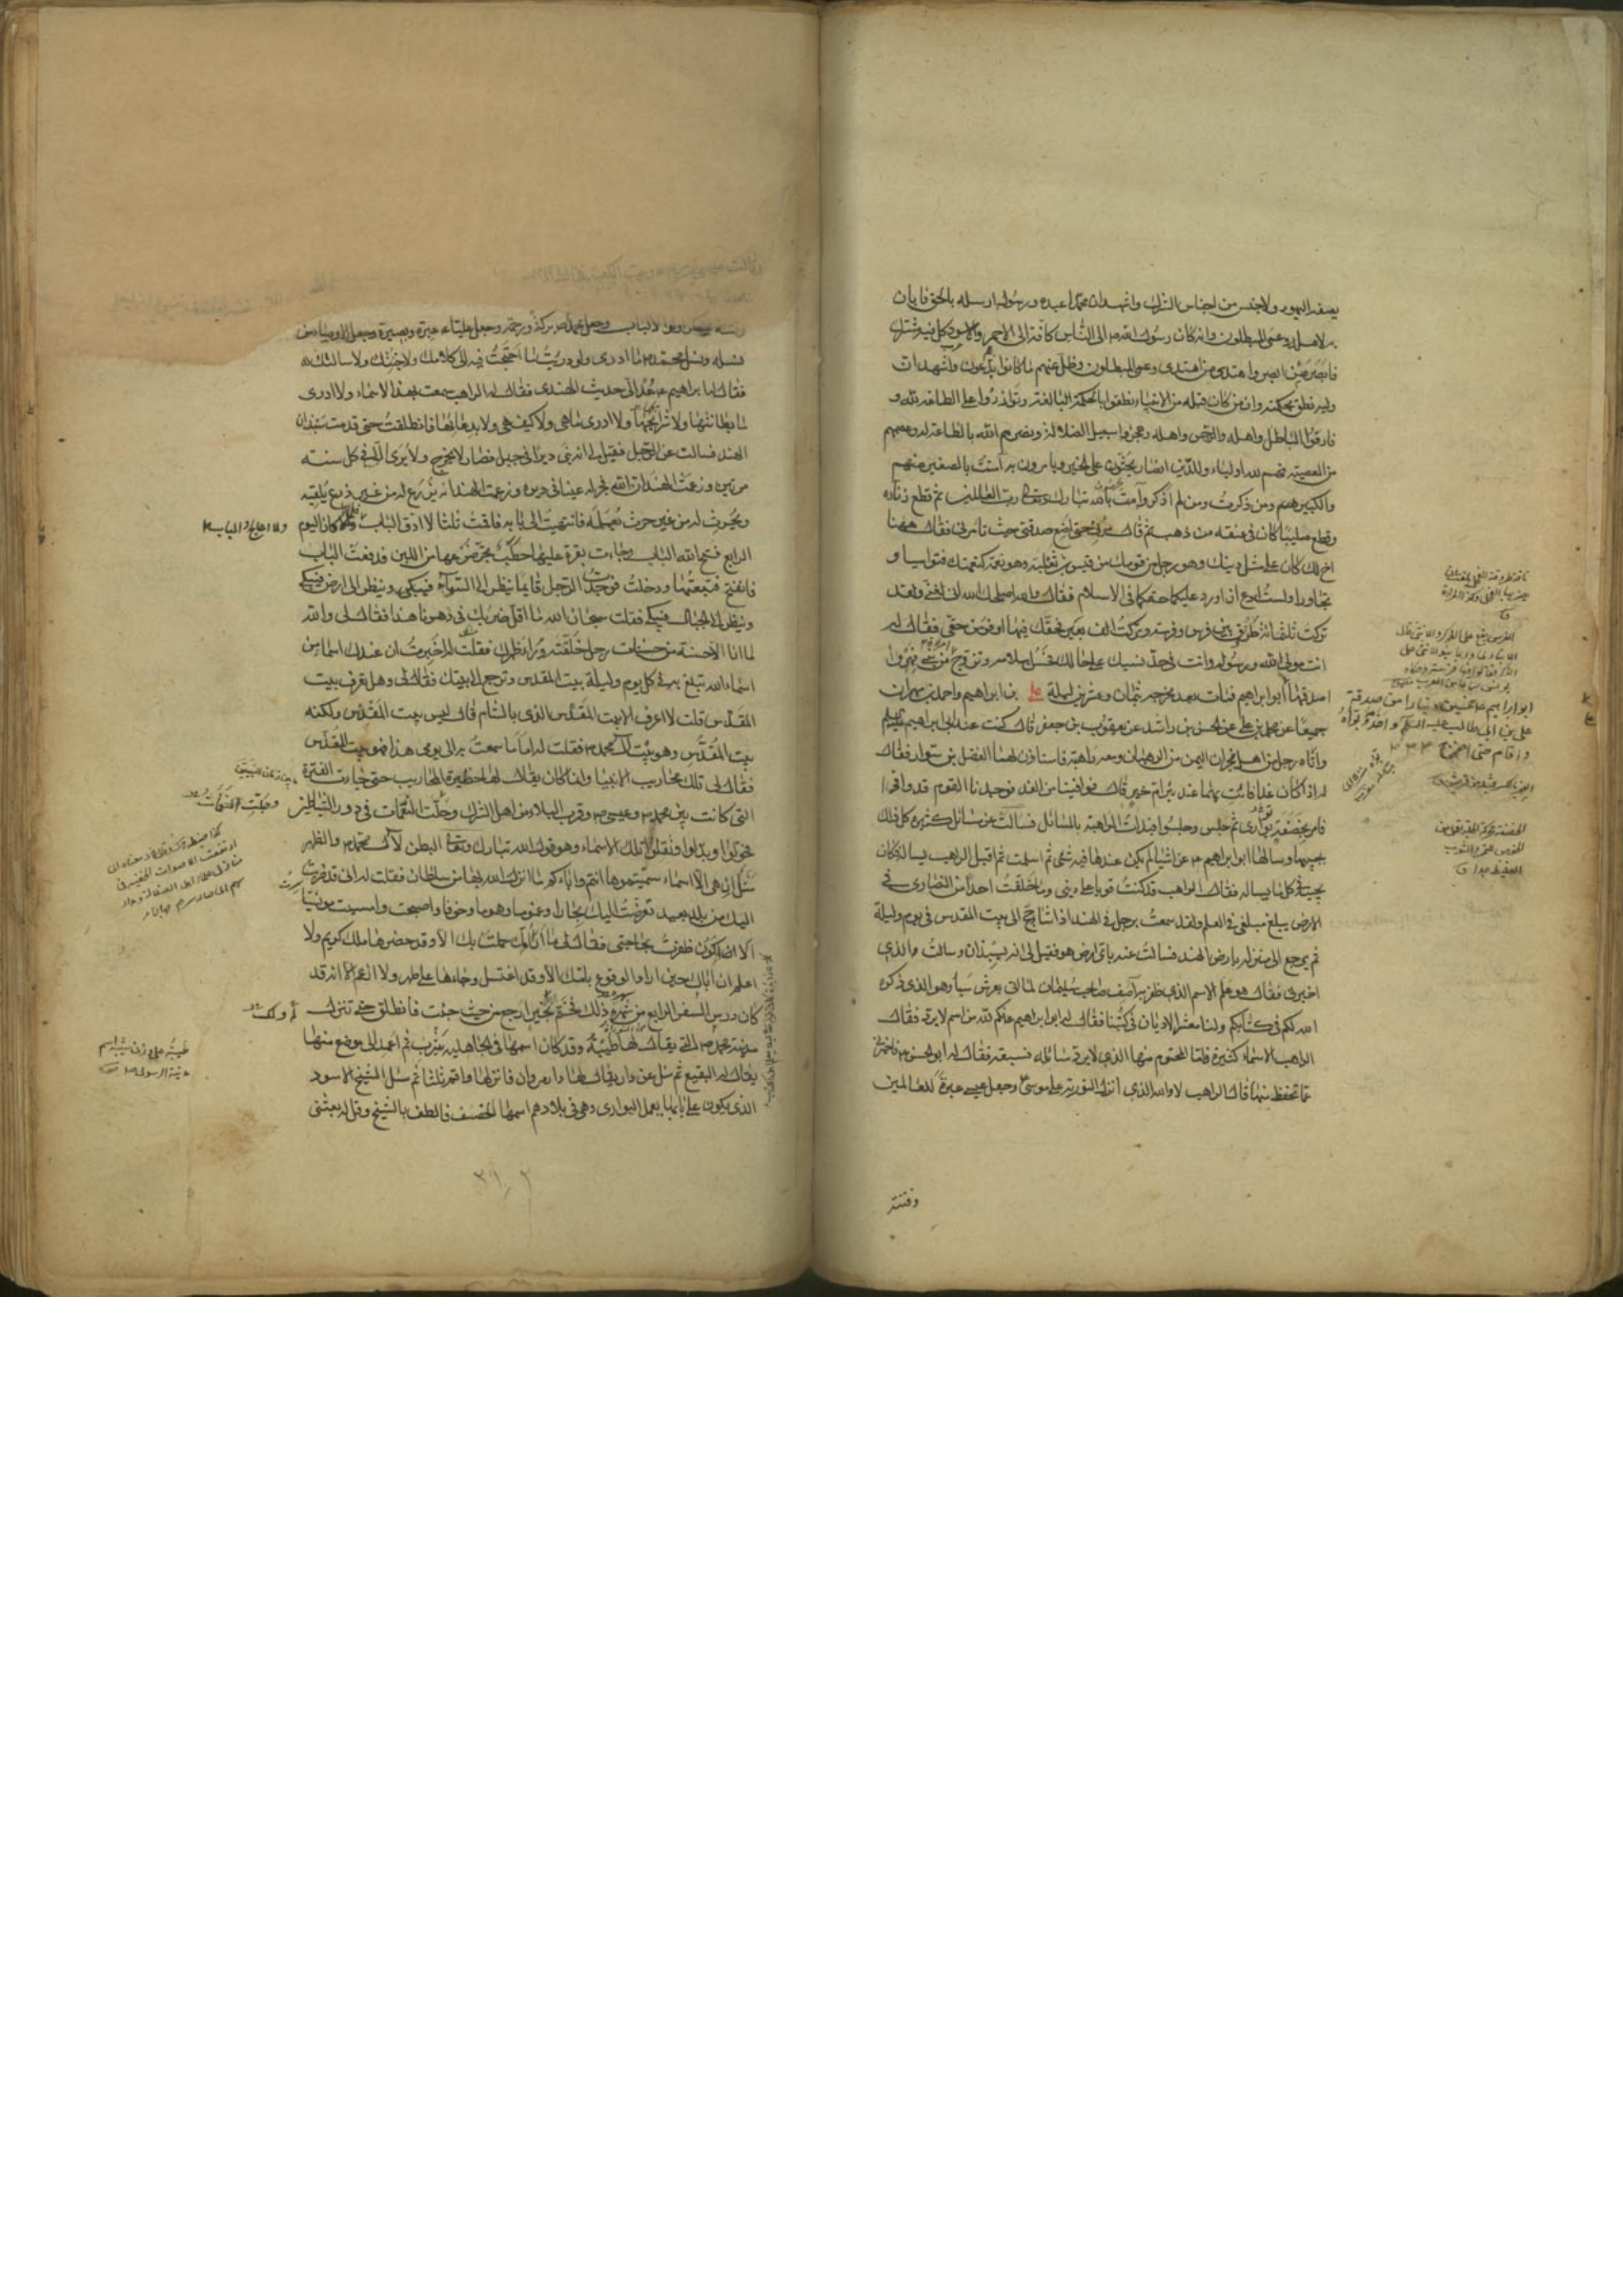 يصفه اليهود ولا جنس من اجناس الشرك واشهد ان محمدا عبده ورسوله ارسله بالحق فابان
به لاهله وعمى المبطلون وانه كان رسول الله ص الى الناس كافة الى الاحمر والاسود كل فيه مشترك
فابصر من ابصر واهتدى من اهتدى وعمى المبطلون وضل عنهم ما كانوا يدعون واشهد ان
وليه نطق بحكمته وان من كان قبله من الانبياء نطقوا بالحكمة البالغة وتوازروا على الطاعة لله و
فارقوا الباطل واهله والرجس واهله وهجروا سبيل الضلالة ونصرهم الله بالطاعة له وعصمهم
من المعصية فهم لله اولياء وللدين انصار يحثون على الخير ويامرون به آمنت بالصغير منهم
والكبير ومن ذكرت ومن لم اذكر وآمنت بالله تبارك وتعالى رب العالمين ثم قطع زناره
وقطع صليبا كان في عنقه من ذهب ثم قال مرني حتى اضع صدقتي حيث تامرني فقال ههنا
اخ لك كان على مثل دينك وهو رجل من قومك من قيس بن ثعلبة وهو في نعمة كنعمتك فتواسيا و
تجاورا ولست ادع ان اورد عليكما حقكما في الاسلام فقال والله اصلحك الله اني لغني ولقد
تركت ثلثمائة طروق بين فرس وفرسة وتركت الف بعير فحقك فيها اوفر من حقي فقال له
انت مولى الله ورسوله وانت في حد نسبك على حالك فحسن اسلامه وتزوج امراة من بني فهر و
اصدقها ابو ابراهيم
ابو ابراهيم ع خمسين دينارا من صدقة
على بن ابي طالب عليه السلم واخدمه وبواه
واقام حتى اخرج
فمات بعد مخرجه بثمان وعشرين ليلة علي بن ابراهيم واحمد بن مهران
جميعا عن محمد بن علي عن الحسن بن راشد عن يعقوب بن جعفر قال كنت عند ابي ابراهيم عليه السلم
واتاه رجل من اهل نجران اليمن من الرهبان ومعه راهبة فاستاذن لهما الفضل بن سوار فقال
له اذا كان غدا فائت بهما عند بئر ام خير قال فوافينا من الغد فوجدنا القوم قد وافوا
فامر بخصفة بواري ثم جلس وجلسوا فبدات الراهبة بالمسائل فسالت عن مسائل كثيرة كل ذلك
يجيبها وسالها ابو ابراهيم ع عن اشياء لم يكن عندها فيه شئ ثم اسلمت ثم اقبل الراهب يساله فكان
يجيبه في كل ما يساله فقال الراهب قد كنت قويا على ديني وما خلفت احدا من النصارى في
الارض يبلغ مبلغي في العلم ولقد سمعت برجل في الهند اذا شاء حج الى بيت المقدس في يوم وليلة
ثم يرجع الى منزله بارض الهند فسالت عنه باي ارض هو فقيل لي انه بسبذان وسالت الذي
اخبرني فقال هو علم الاسم الذي ظفر به آصف صاحب سليمان لما اتى بعرش سبا وهو الذي ذكره
الله لكم في كتابكم ولنا معشر الاديان في كتبنا فقال له ابو ابراهيم فكم لله من اسم لا يرد فقال
الراهب الاسماء كثيرة فاما المحتوم منها الذي لا يرد سائله فسبعة فقال له ابو الحسن ع فاخبرني
عما تحفظ منها قال الراهب لا والله الذي انزل التورية على موسى وجعل عيسى عبرة للعالمين
وفتنة
نسله ونسل محمد ص ما ادري ولو دريت ما احتجت فيه الى كلامك ولا جئتك ولا سالتك
فقال له ابو ابراهيم ع عد الى حديث الهندي فقال له الراهب سمعت بهذه الاسماء ولا ادري
ما بطانتها ولا شرايحها ولا ادري ما هي ولا كيف هي ولا بدعائها فانطلقت حتى قدمت سبذان
الهند فسالت عن الرجل فقيل لي انه بنى ديرا في جبل فصار لا يخرج ولا يرى الا في كل سنة
مرتين وزعمت الهند ان الله فجر له عينا في ديره وزعمت الهند انه يزرع له من غير زرع يلقيه
ويحرث له من غير حرث يعمله فانتهيت الى بابه فاقمت ثلثا لا ادق الباب ولا اعالج الباب فلما كان اليوم
الرابع فتح الله الباب وجاءت بقرة عليها حطب تجر ضرعها من اللبن فدفعت الباب
فانفتح فتبعتها ودخلت فوجدت الرجل قائما ينظر الى السماء فيبكي وينظر الى الارض فيبكي
وينظر الى الجبال فيبكي فقلت سبحان الله ما اقل ضربك في دهرنا هذا فقال لي والله
ما انا الا حسنة من حسنات رجل خلفته وراء ظهرك فقلت له اخبرت ان عندك اسما من
اسماء الله تبلغ به في كل يوم وليلة بيت المقدس وترجع الى بيتك فقال لي وهل تعرف بيت
المقدس قلت لا اعرف الا بيت المقدس الذي بالشام قال ليس بيت المقدس ولكنه
بيت المقدس وهو بيت آل محمد ص فقلت له اما ما سمعت به الى يومي هذا فهو بيت المقدس
فقال لي تلك محاريب الانبيا وانما كان يقال لها حظيرة المحاريب حتى جاءت الفترة
التي كانت بين محمد ص وعيسى ص وقرب البلاء من اهل الشرك وحلت النقمات في دور الشياطين
فحولوا وبدلوا ونقلوا تلك الاسماء وهو قول الله تبارك وتعالى البطن لآل محمد ص والظهر
مثل ان هي الا اسماء سميتموها انتم وآباؤكم ما انزل الله بها من سلطان فقلت له اني قد ضربت
اليك من بلد بعيد تعرضت اليك بحارا وغموما وهموما وخوفا واصبحت وامسيت مويسا
الا اكون ظفرت بحاجتي فقال لي ما ارى امك حملت بك الا وقد حضرها ملك كريم ولا
اعلم ان اباك حين اراد الوقوع بامك الا وقد اغتسل وجاءها على طهر ولا ازعم الا انه قد
كان درس السفر الرابع من سهره ذلك فختم له بخير ارجع من حيث جئت فانطلق حتى تنزل
مدينة محمد ص التي يقال لها طيبة وقد كان اسمها في الجاهلية يثرب ثم اعمد الى موضع منها
يقال له البقيع ثم سل عن دار يقال لها دار مروان فانزلها واقم ثلثا ثم سل الشيخ الاسود
الذي يكون على بابها يعمل البواري وهي في بلادهم اسمها الخصف فالطف بالشيخ وقل له بعثني